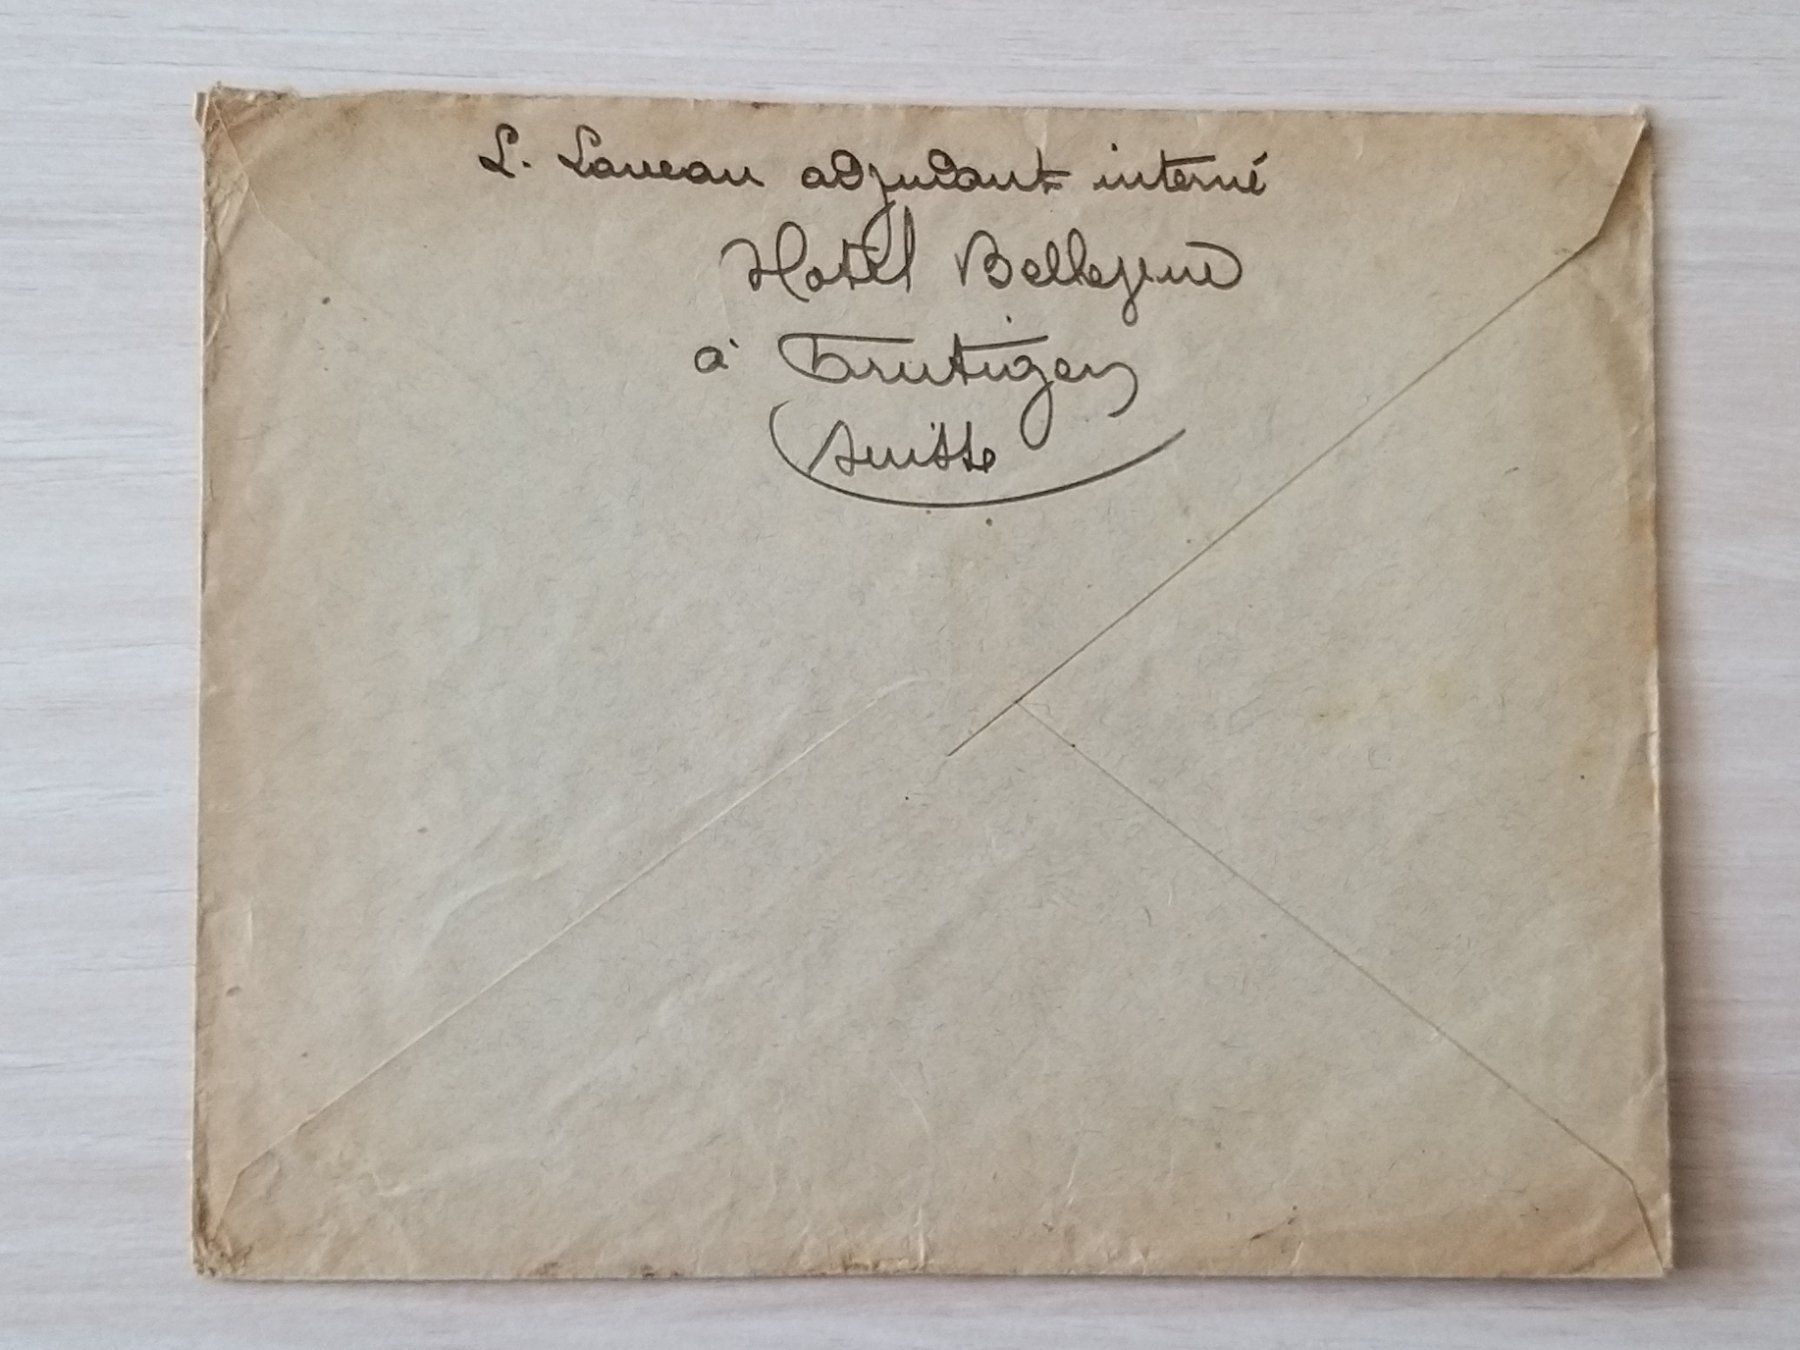 L. Laveau adjudant interné
Hotel Bellevue
à Frutigen
Suisse